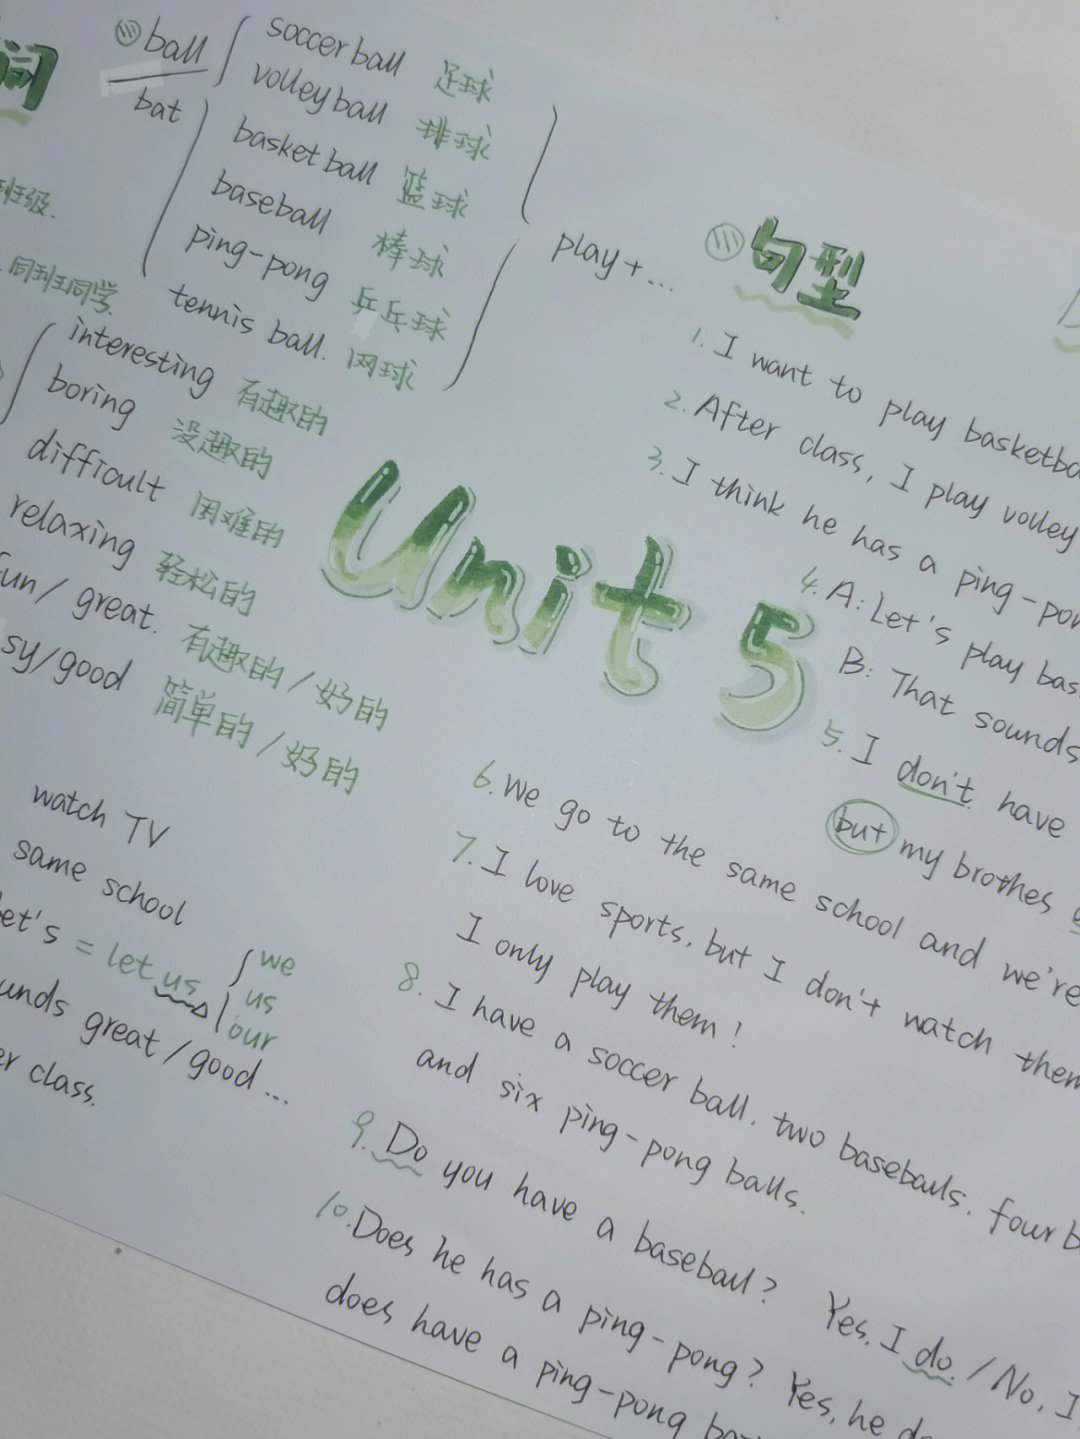 词
班级.
同班同学.
ball
bat
soccer ball 足球
volleyball 排球
basketball 篮球
baseball 棒球
ping-pong 乒乓球
tennis ball. 网球
play+...
interesting 有趣的
boring 没趣的
difficult 困难的
relaxing 轻松的
fun/ great. 有趣的/好的
sy/good 简单的/好的
watch TV
same school
let's = let us
we
us
our
unds great/good...
er class.
Unit 5
句型
1. I want to play basketba
2. After class, I play volley
3. I think he has a ping-pon
4. A: Let's play bas
B: That sounds
5. I don't have
but my brothes
6. We go to the same school and we're
7. I love sports, but I don't watch them
I only play them!
8. I have a soccer ball. two baseballs. four b
and six ping-pong balls.
9. Do you have a baseball? Yes. I do. / No, I
10. Does he has a ping-pong? Yes, he do
does have a ping-pong bat